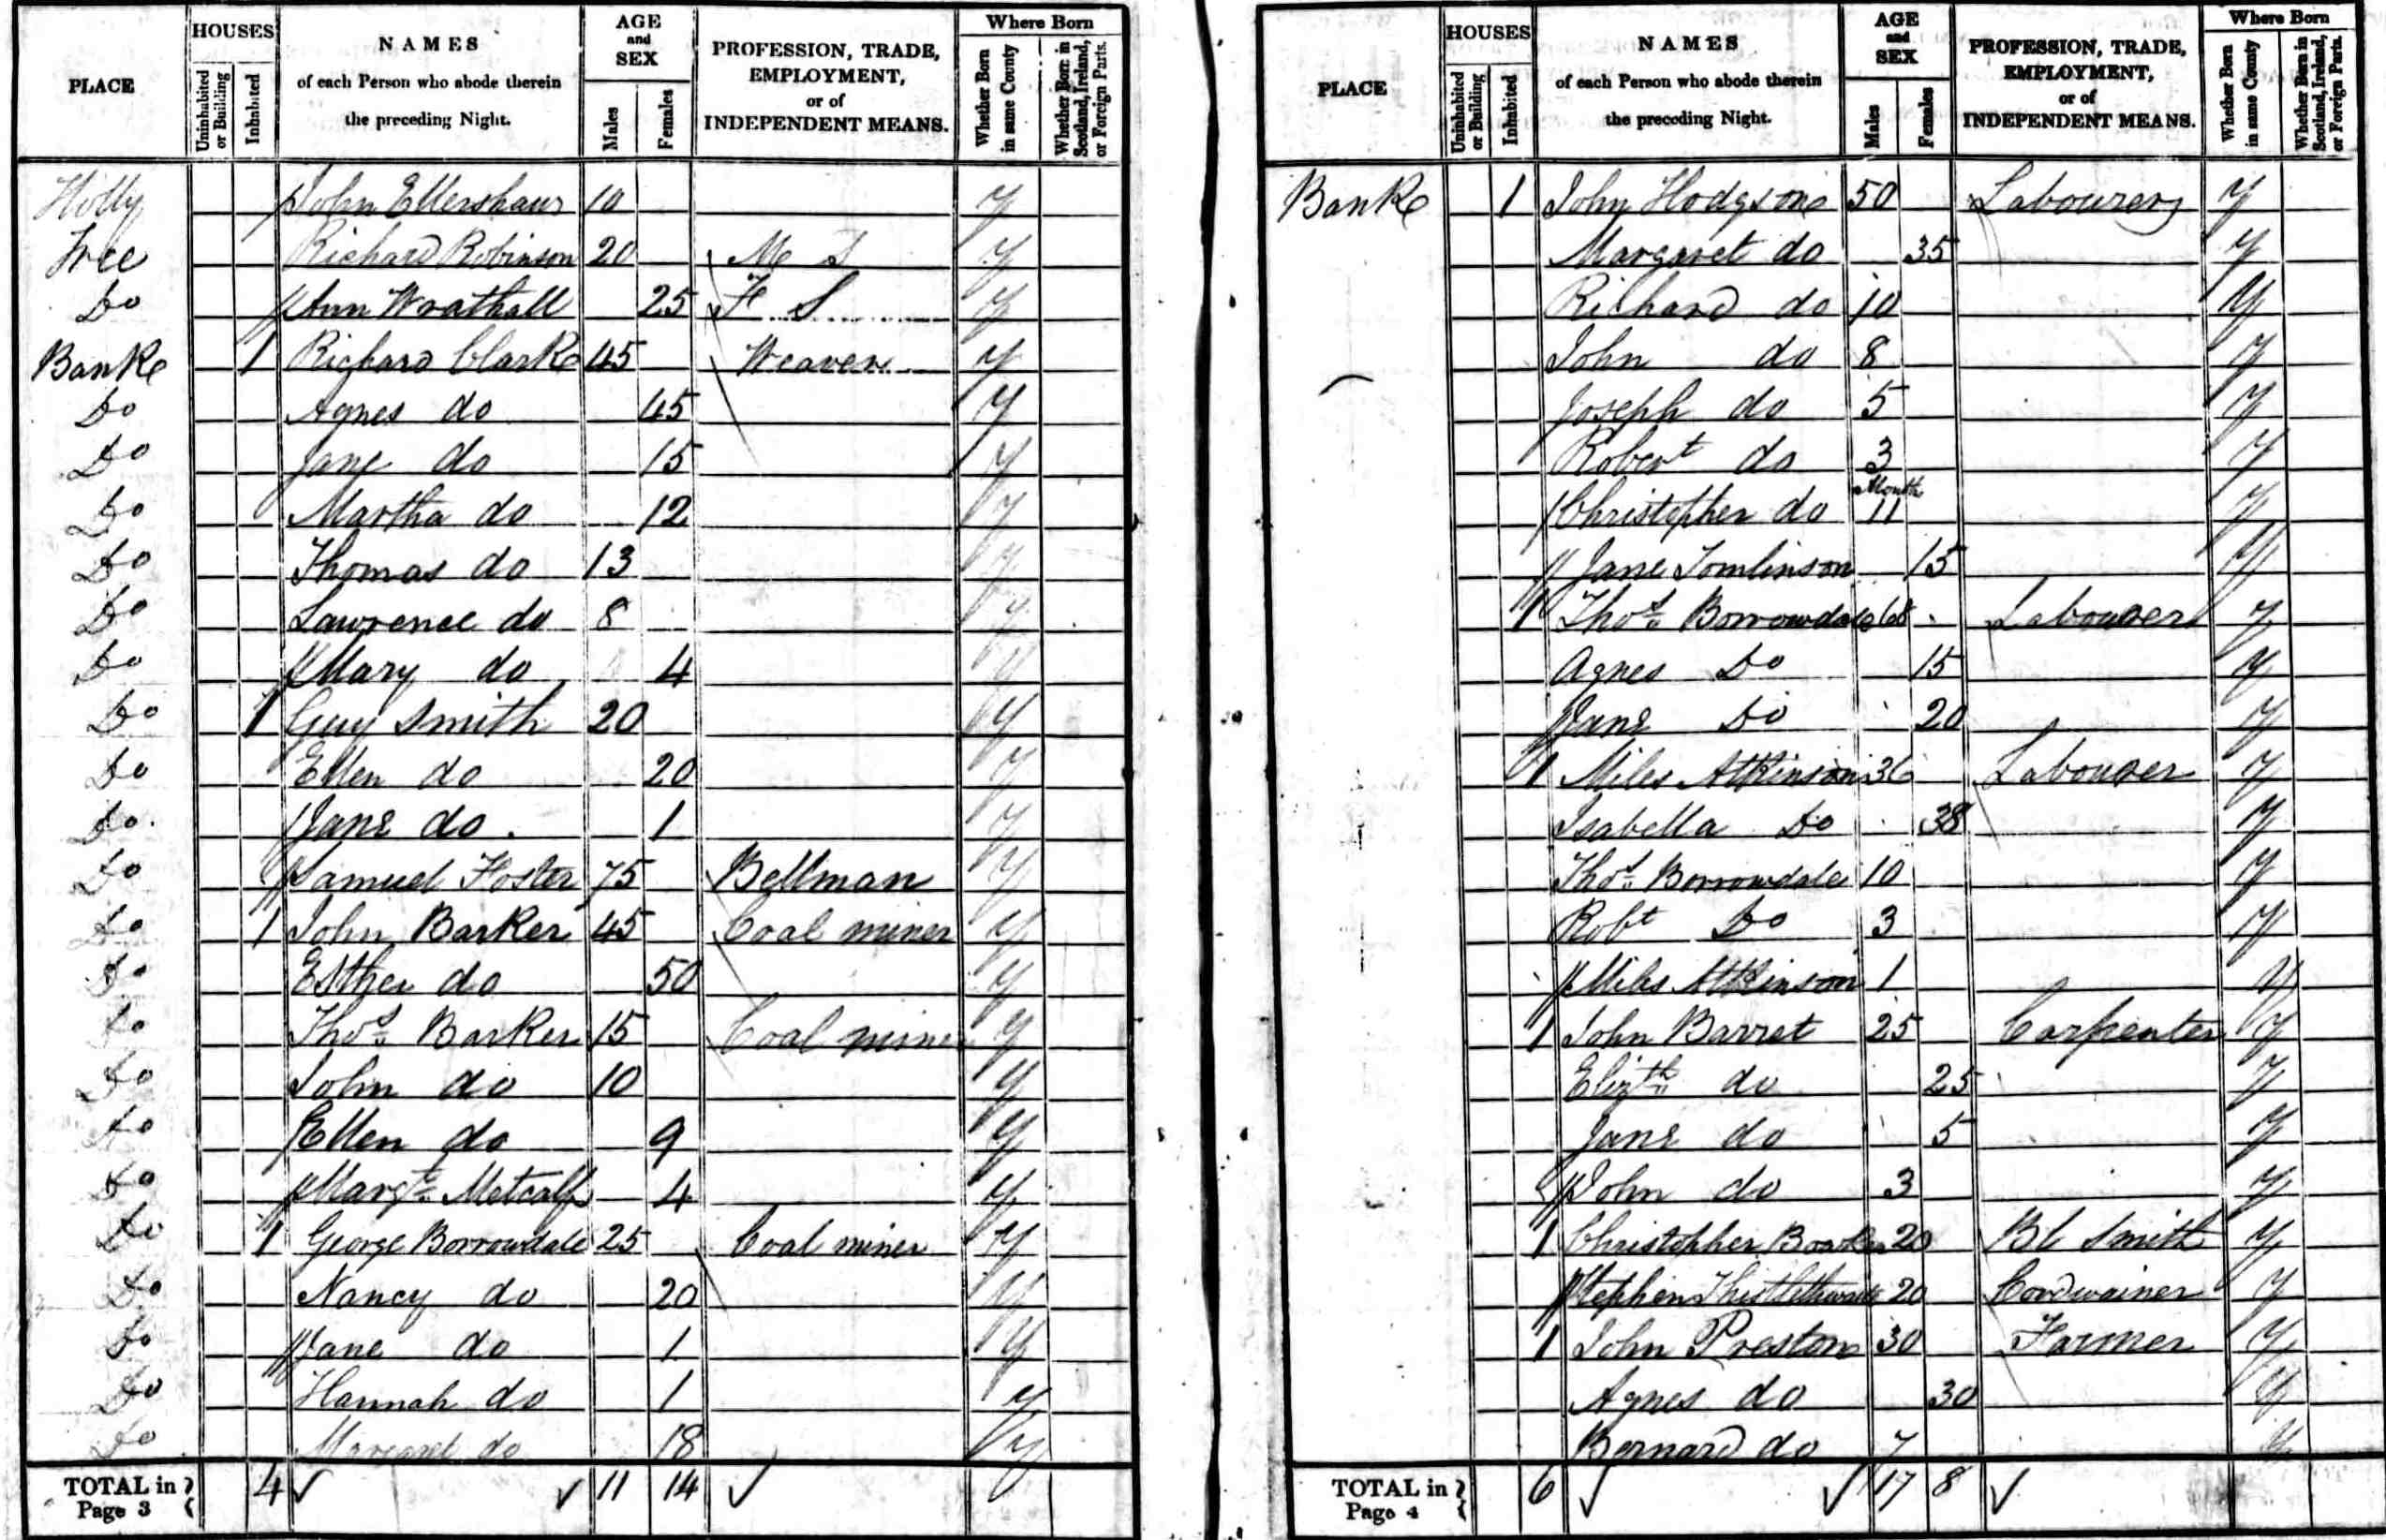 PLACE HOUSES Uninhabited or Building Inhabited NAMES of each Person who abode therein the preceding Night. AGE and SEX Males Females PROFESSION, TRADE, EMPLOYMENT, or of INDEPENDENT MEANS. Where Born Whether Born in same County Whether Born in Scotland, Ireland, or Foreign Parts.
Holly John Ellershaw 10 Y
Tree Richard Robinson 20 M S Y
Do Ann Wrathall 25 F S Y
Bank 1 Richard Clark 45 Weaver Y
Do Agnes do 45 Y
Do Jane do 15 Y
Do Martha do 12 Y
Do Thomas do 13 Y
Do Lawrence do 8 Y
Do Mary do 4 Y
Do 1 Guy Smith 20 Y
Do Ellen do 20 Y
Do Jane do 1 Y
Do Samuel Foster 75 Bellman Y
Do 1 John Barker 45 Coal miner Y
Do Esther do 50 Y
Do Thos Barker 15 Coal miner Y
Do John do 10 Y
Do Ellen do 9 Y
Do Margt Metcalf 4 Y
Do 1 George Borrowdale 25 Coal miner Y
Do Nancy do 20 Y
Do Jane do 1 Y
Do Hannah do 1 Y
Do Margaret do 18 Y
TOTAL in Page 3 4 11 14
PLACE HOUSES Uninhabited or Building Inhabited NAMES of each Person who abode therein the preceding Night. AGE and SEX Males Females PROFESSION, TRADE, EMPLOYMENT, or of INDEPENDENT MEANS. Where Born Whether Born in same County Whether Born in Scotland, Ireland, or Foreign Parts.
Bank 1 John Hodgson 50 Labourer Y
Margaret do 35 Y
Richard do 10 Y
John do 8 Y
Joseph do 5 Y
Robert do 3 Y
Christopher do 11 Month Y
Jane Tomlinson 15 Y
1 Thos Borrowdale 68 Labourer Y
Agnes Do 15 Y
Jane Do 20 Y
1 Miles Atkinson 36 Labourer Y
Isabella Do 38 Y
Thos Borrowdale 10 Y
Robt Do 3 Y
Miles Atkinson 1 Y
1 John Barret 25 Carpenter Y
Elizth do 25 Y
Jane do 5 Y
John do 3 Y
1 Christopher 20 Bl Smith Y
Stephen Thistlethwaite 20 Cordwainer Y
1 John Preston 30 Farmer Y
Agnes do 30 Y
Bernard do 7 Y
TOTAL in Page 4 6 17 8